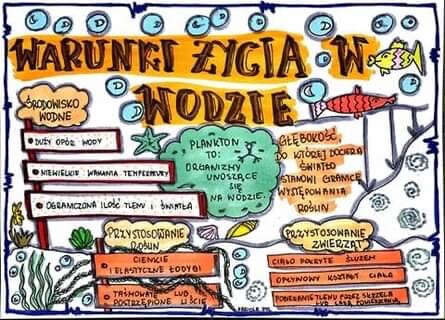 WARUNKI ŻYCIA W
WODZIE
ŚRODOWISKO
WODNE
DUŻY OPÓR WODY
NIEWIELKIE WAHANIA TEMPERATURY
OGRANICZONA ILOŚĆ TLENU I ŚWIATŁA
PLANKTON
TO:
ORGANIZMY
UNOSZĄCE
SIĘ
NA WODZIE.
GŁĘBOKOŚĆ,
DO KTÓREJ DOCIERA
ŚWIATŁO
STANOWI GRANICĘ
WYSTĘPOWANIA
ROŚLIN
PRZYSTOSOWANIE
ROŚLIN
CIENKIE
I ELASTYCZNE ŁODYGI
TAŚMOWATE LUB
POSTRZĘPIONE LIŚCIE
PRZYSTOSOWANIE
ZWIERZĄT
CIAŁO POKRYTE ŚLUZEM
OPŁYWOWY KSZTAŁT CIAŁA
POBIERANIE TLENU PRZEZ SKRZELA
LUB CAŁĄ POWIERZCHNIĄ